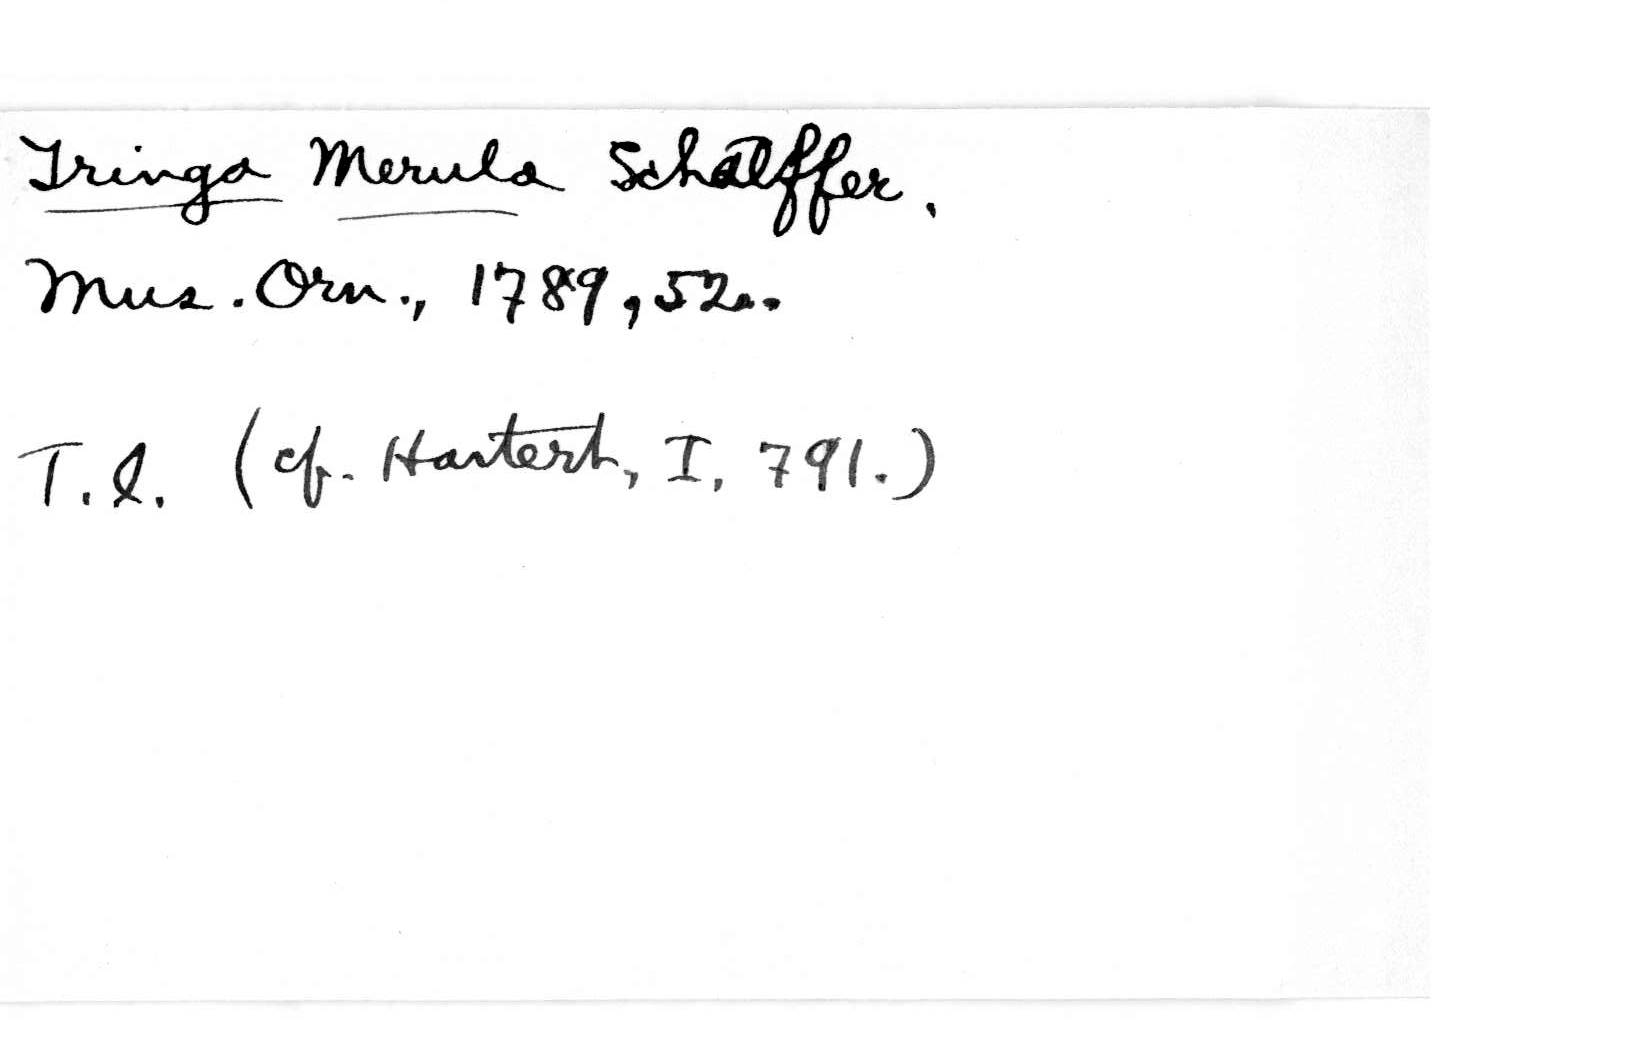 Tringa Merula Schaeffer.
Mus. Orn., 1789, 52.
T.l. (cf. Hartert, I, 791.)